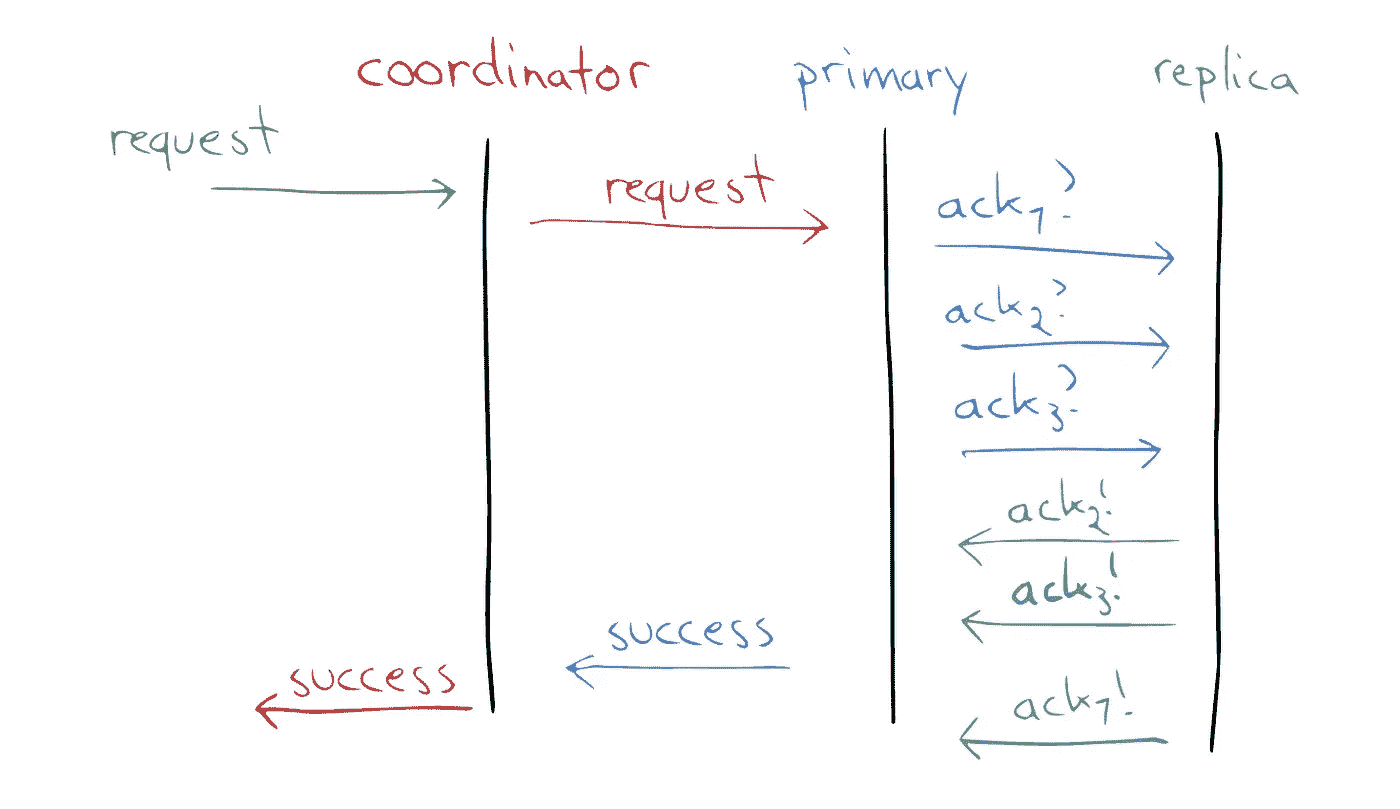 coordinator
primary
replica
request
request
ack₁?
ack₂?
ack₃?
ack₂!
ack₃!
success
success
ack₁!